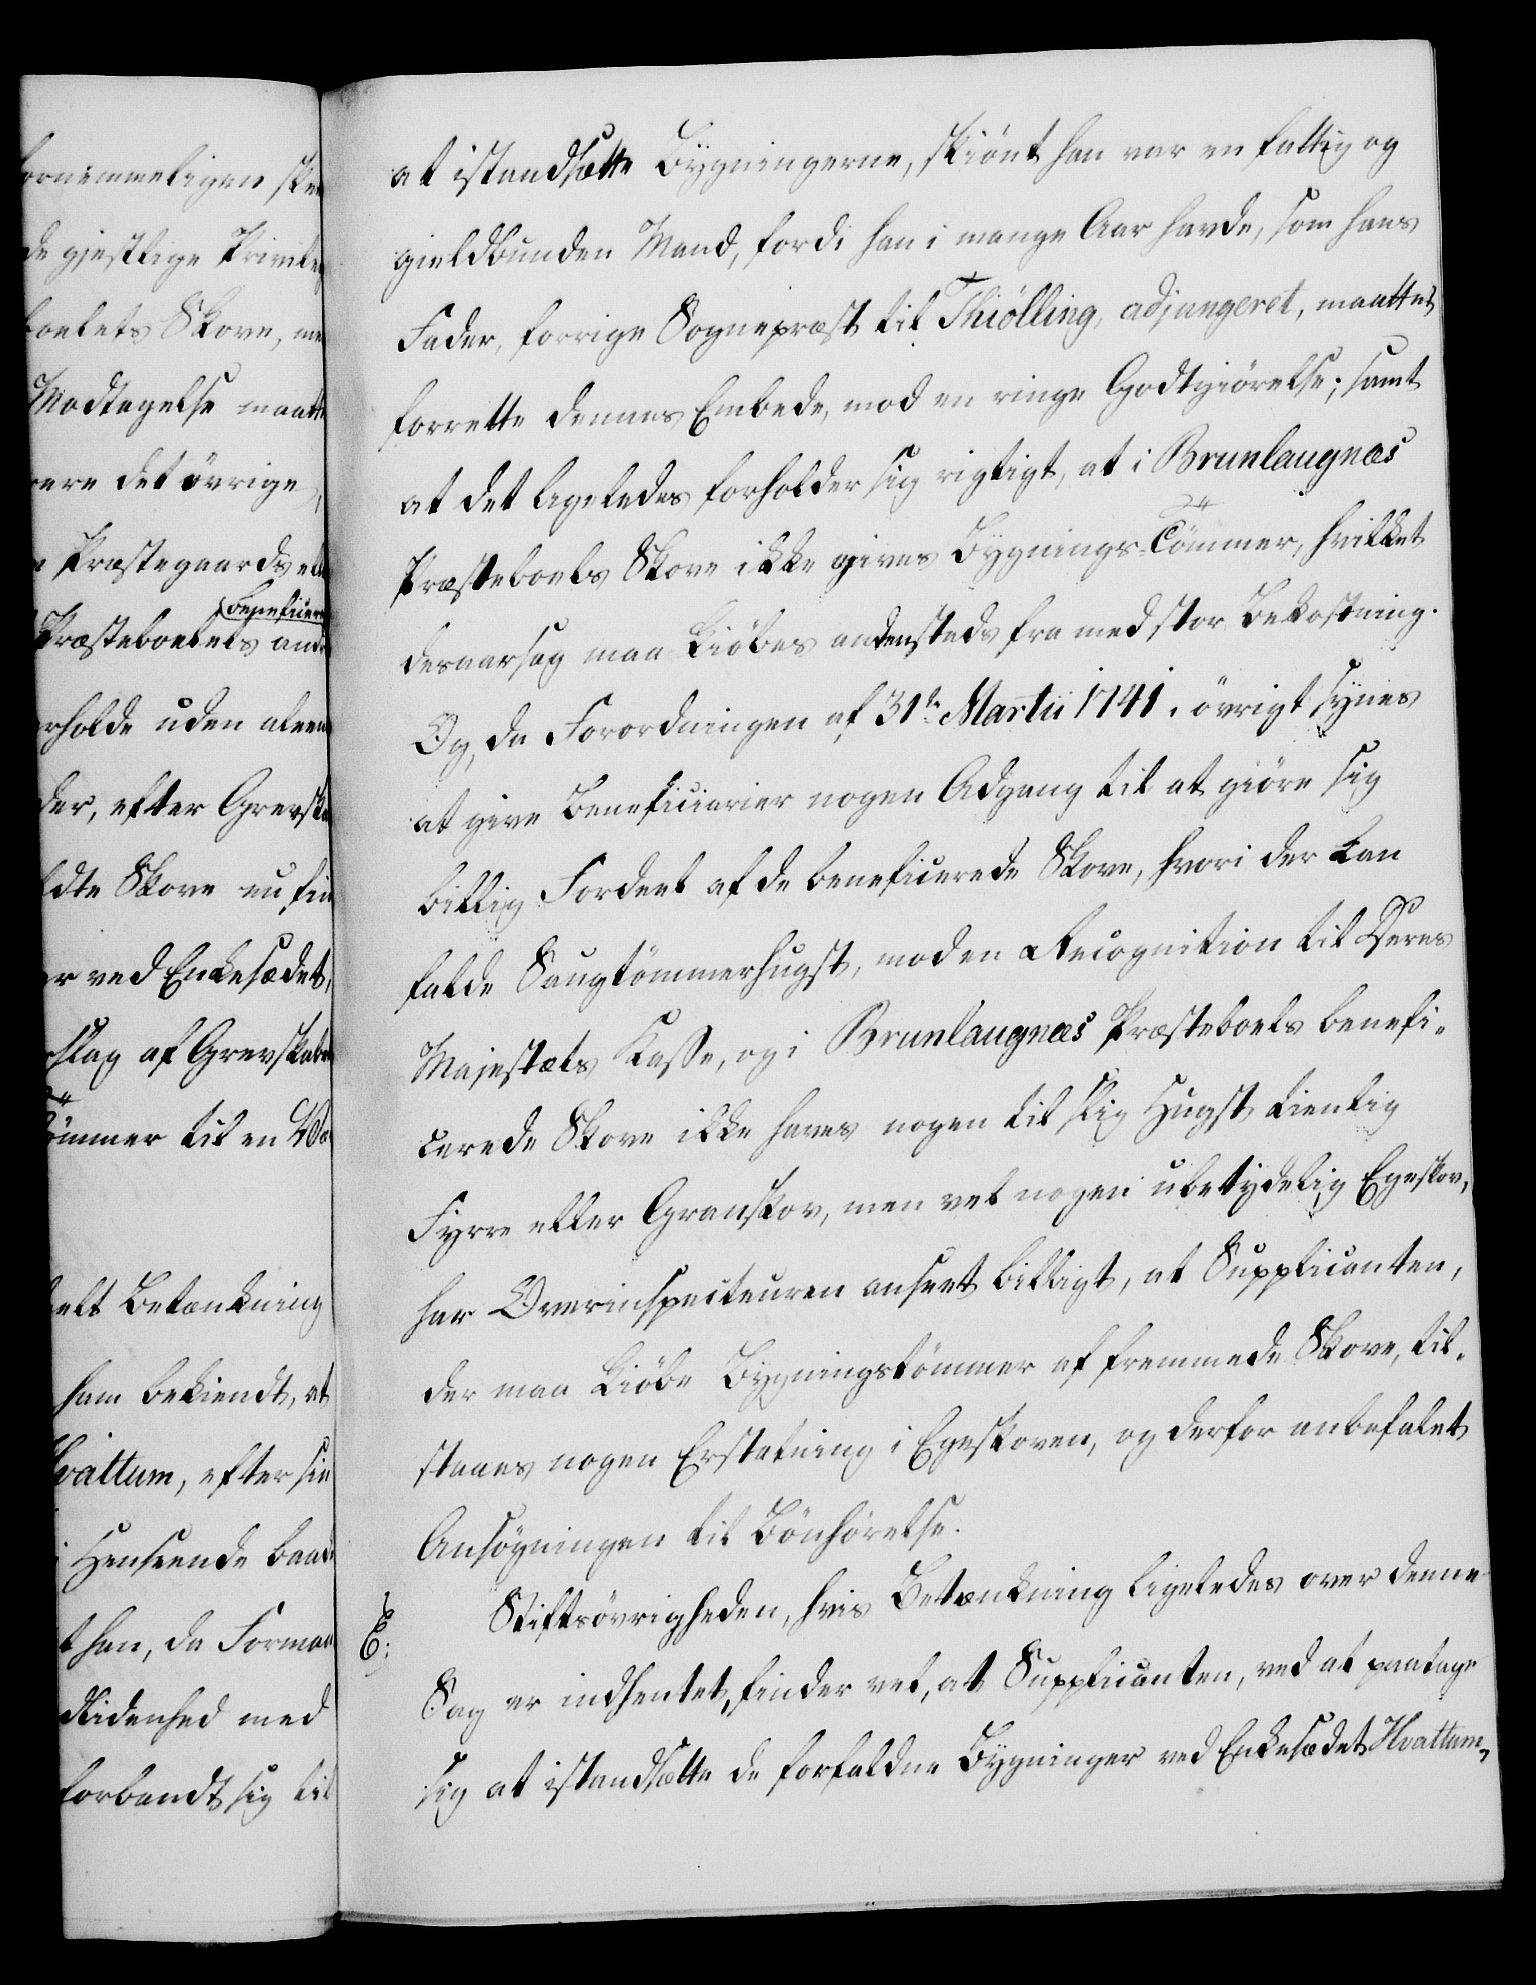 ornemmeligen spe
de gjestlige Privile
boelets Skove, me
Modtagelse maatte
vere det övrige,
Præstegaards ell
beneficer
Præsteboelets and
rholde uden aleen
der, efter Grevska
ldte Skove nu fin
er ved Enkesædet,
slag af Grevskabe
Tömmer til en
helt Betænkning
ham bekiendt, at
Hvattum, efter sin
i Henseende baade
t han, da Forman
stidenhed med
forbandt sig til
at istandsætte Bygningerne, skiönt han var en fattig og
gieldbunden Mand, fordi han i mange Aar havde, som hans
Fader, forrige Sognepræst til Thiölling, adjungeret, maattet
forrette dennes Embede, mod en ringe Godtgiörelse; samt
at det ligeledes forholder sig rigtigt, at i Brunlaugnæs
Præsteboels Skove ikke gives Bygnings-Tömmer, hvilket
desaarsag maa kiöbes andensteds fra med stor Bekostning.
Og, da Forordningen af 31te Martii 1741. övrigt synes
at give Beneficiarier nogen Adgang til at giöre sig
billig Fordeel af de beneficerede Skove, hvori der kan
falde Saugtömmerhugst, mod en Recognition til Deres
Majestæts Kasse, og i Brunlaugnæs Præsteboels benefi-
cerede Skove ikke haves nogen til slig Hugst tienlig
Fyrre eller Granskov, men vel nogen ubetydelig Egeskov,
har Overinspecteuren anseet billigt, at Supplicanten,
der maa kiöbe Bygningstömmer af fremmede Skove, til-
staaes nogen Erstatning i Egeskoven, og derfor anbefalet
Ansögningen til Bönhörelse.
E: Stiftsövrigheden, hvis Betænkning ligeledes over denne
Sag er indhentet, finder vel, at Supplicanten, ved at paatage
sig at istandsætte de forfaldne Bygninger ved Enkesædet Hvattum,